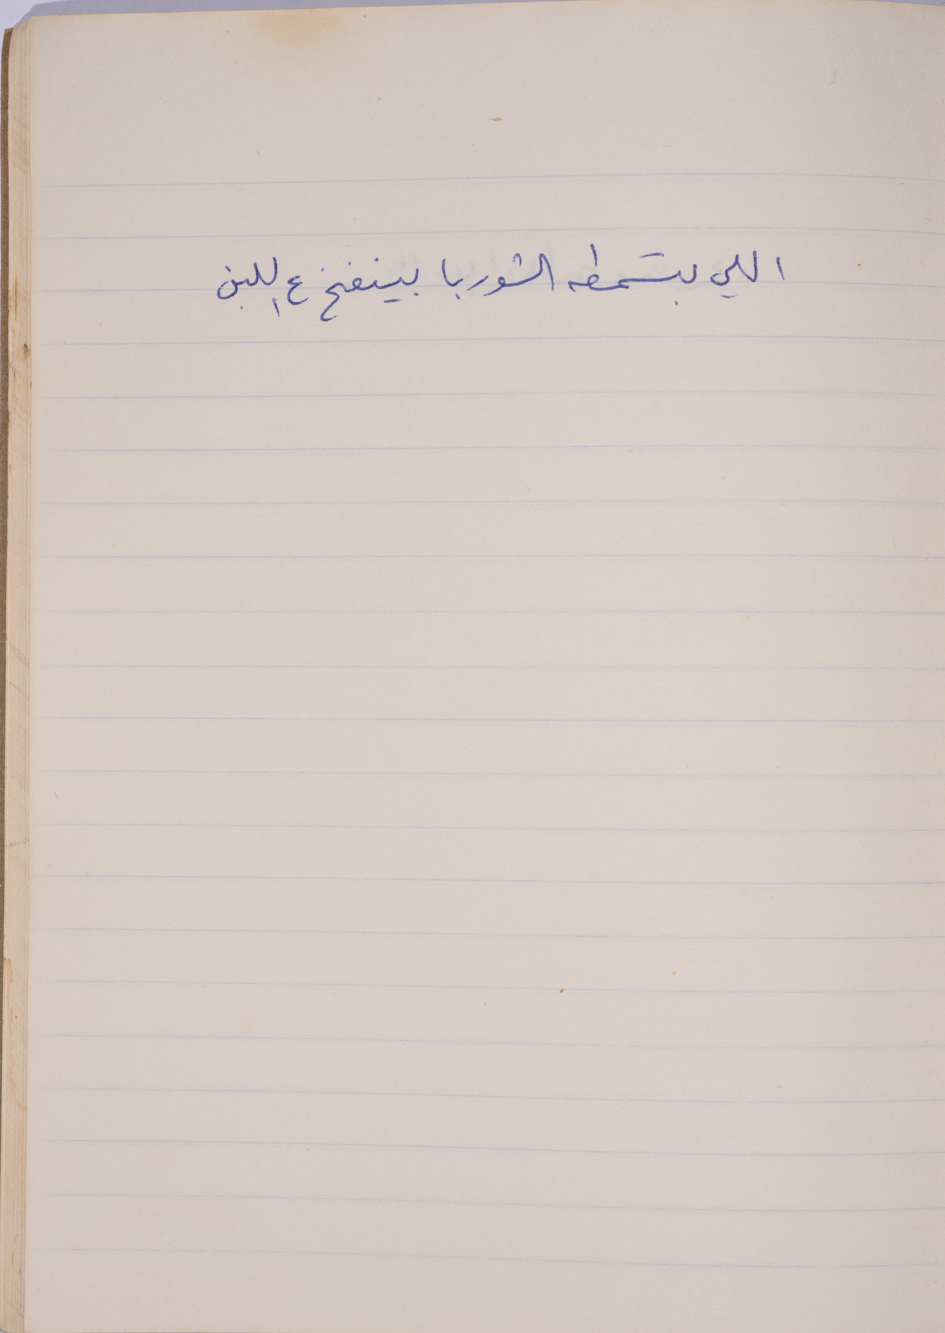 اللي بتشمطه الشوربا بينفخ ع اللبن